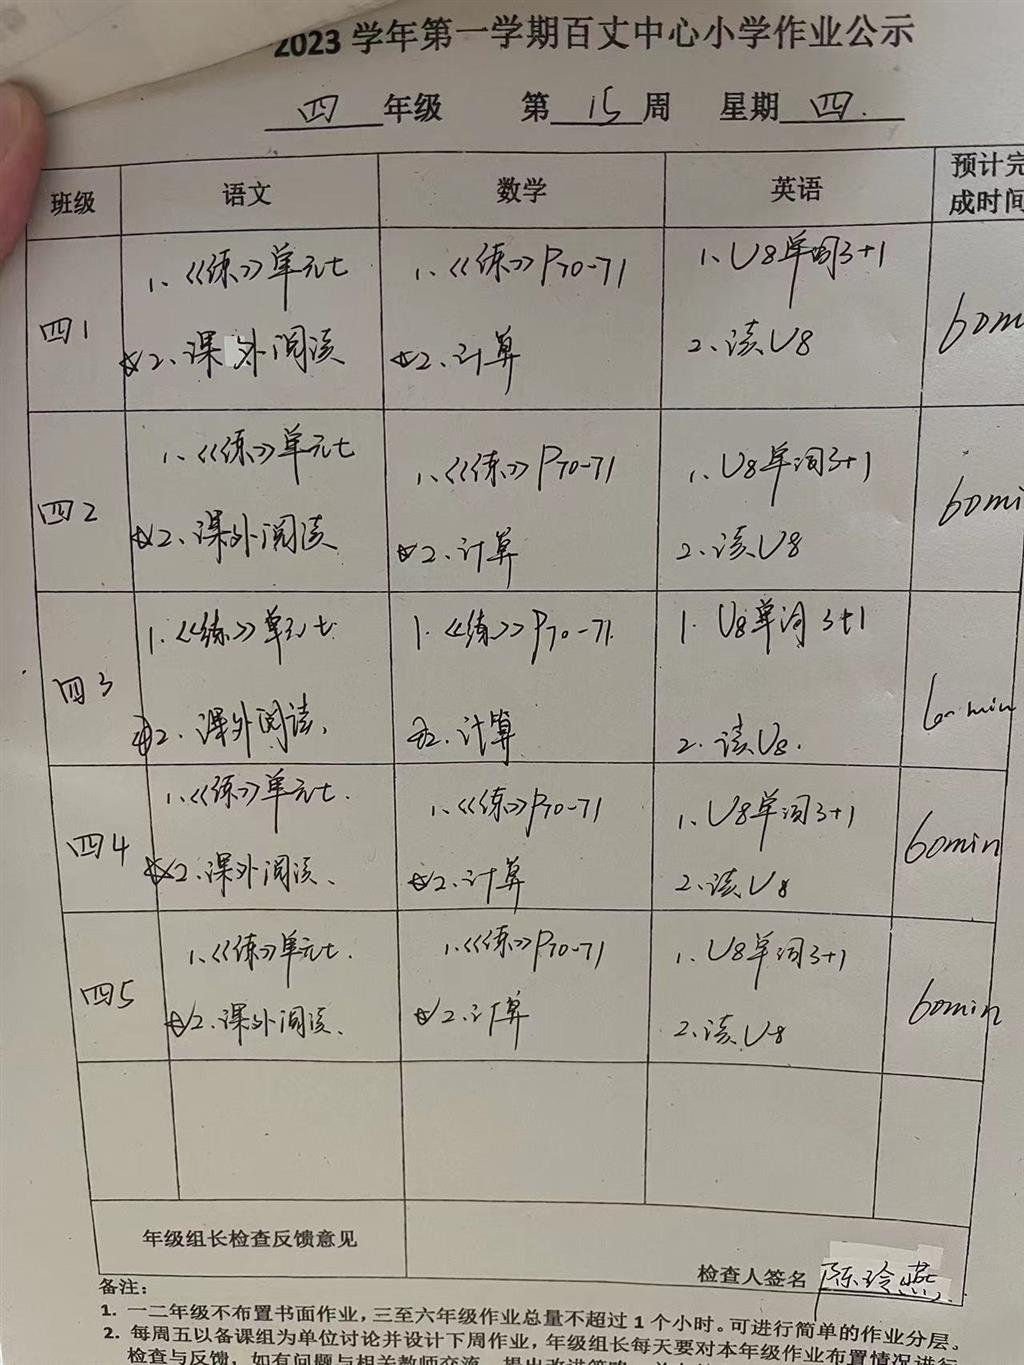 2023 学年第一学期百丈中心小学作业公示
四 年级 第 15 周 星期 四.
班级 语文 数学 英语 预计完
成时间
四1
1、《练》单元七
☆2、课外阅读
1、《练》P70-71
☆2、计算
1、U8单词3+1
2、读U8
60m
四2
1、《练》单元七
☆2、课外阅读
1、《练》P70-71
☆2、计算
1、U8单词3+1
2、读U8
60mi
四3
1.《练》单元七
☆2.课外阅读.
1.《练》P70-71.
☆2.计算
1. U8单词 3+1
2. 读U8.
60 min
四4
1、《练》单元七.
☆2、课外阅读、
1、《练》P70-71
☆2、计算
1、U8单词3+1
2、读U8
60min
四5
1、《练》单元七.
☆2、课外阅读、
1、《练》P70-71
☆2、计算
1、U8单词3+1
2、读U8
60min
年级组长检查反馈意见
检查人签名 陈玲燕
备注:
1. 一二年级不布置书面作业，三至六年级作业总量不超过 1 个小时。可进行简单的作业分层。
2. 每周五以备课组为单位讨论并设计下周作业，年级组长每天要对本年级作业布置情况进行
检查与反馈，如有问题与相关教师交流，提出改进策略